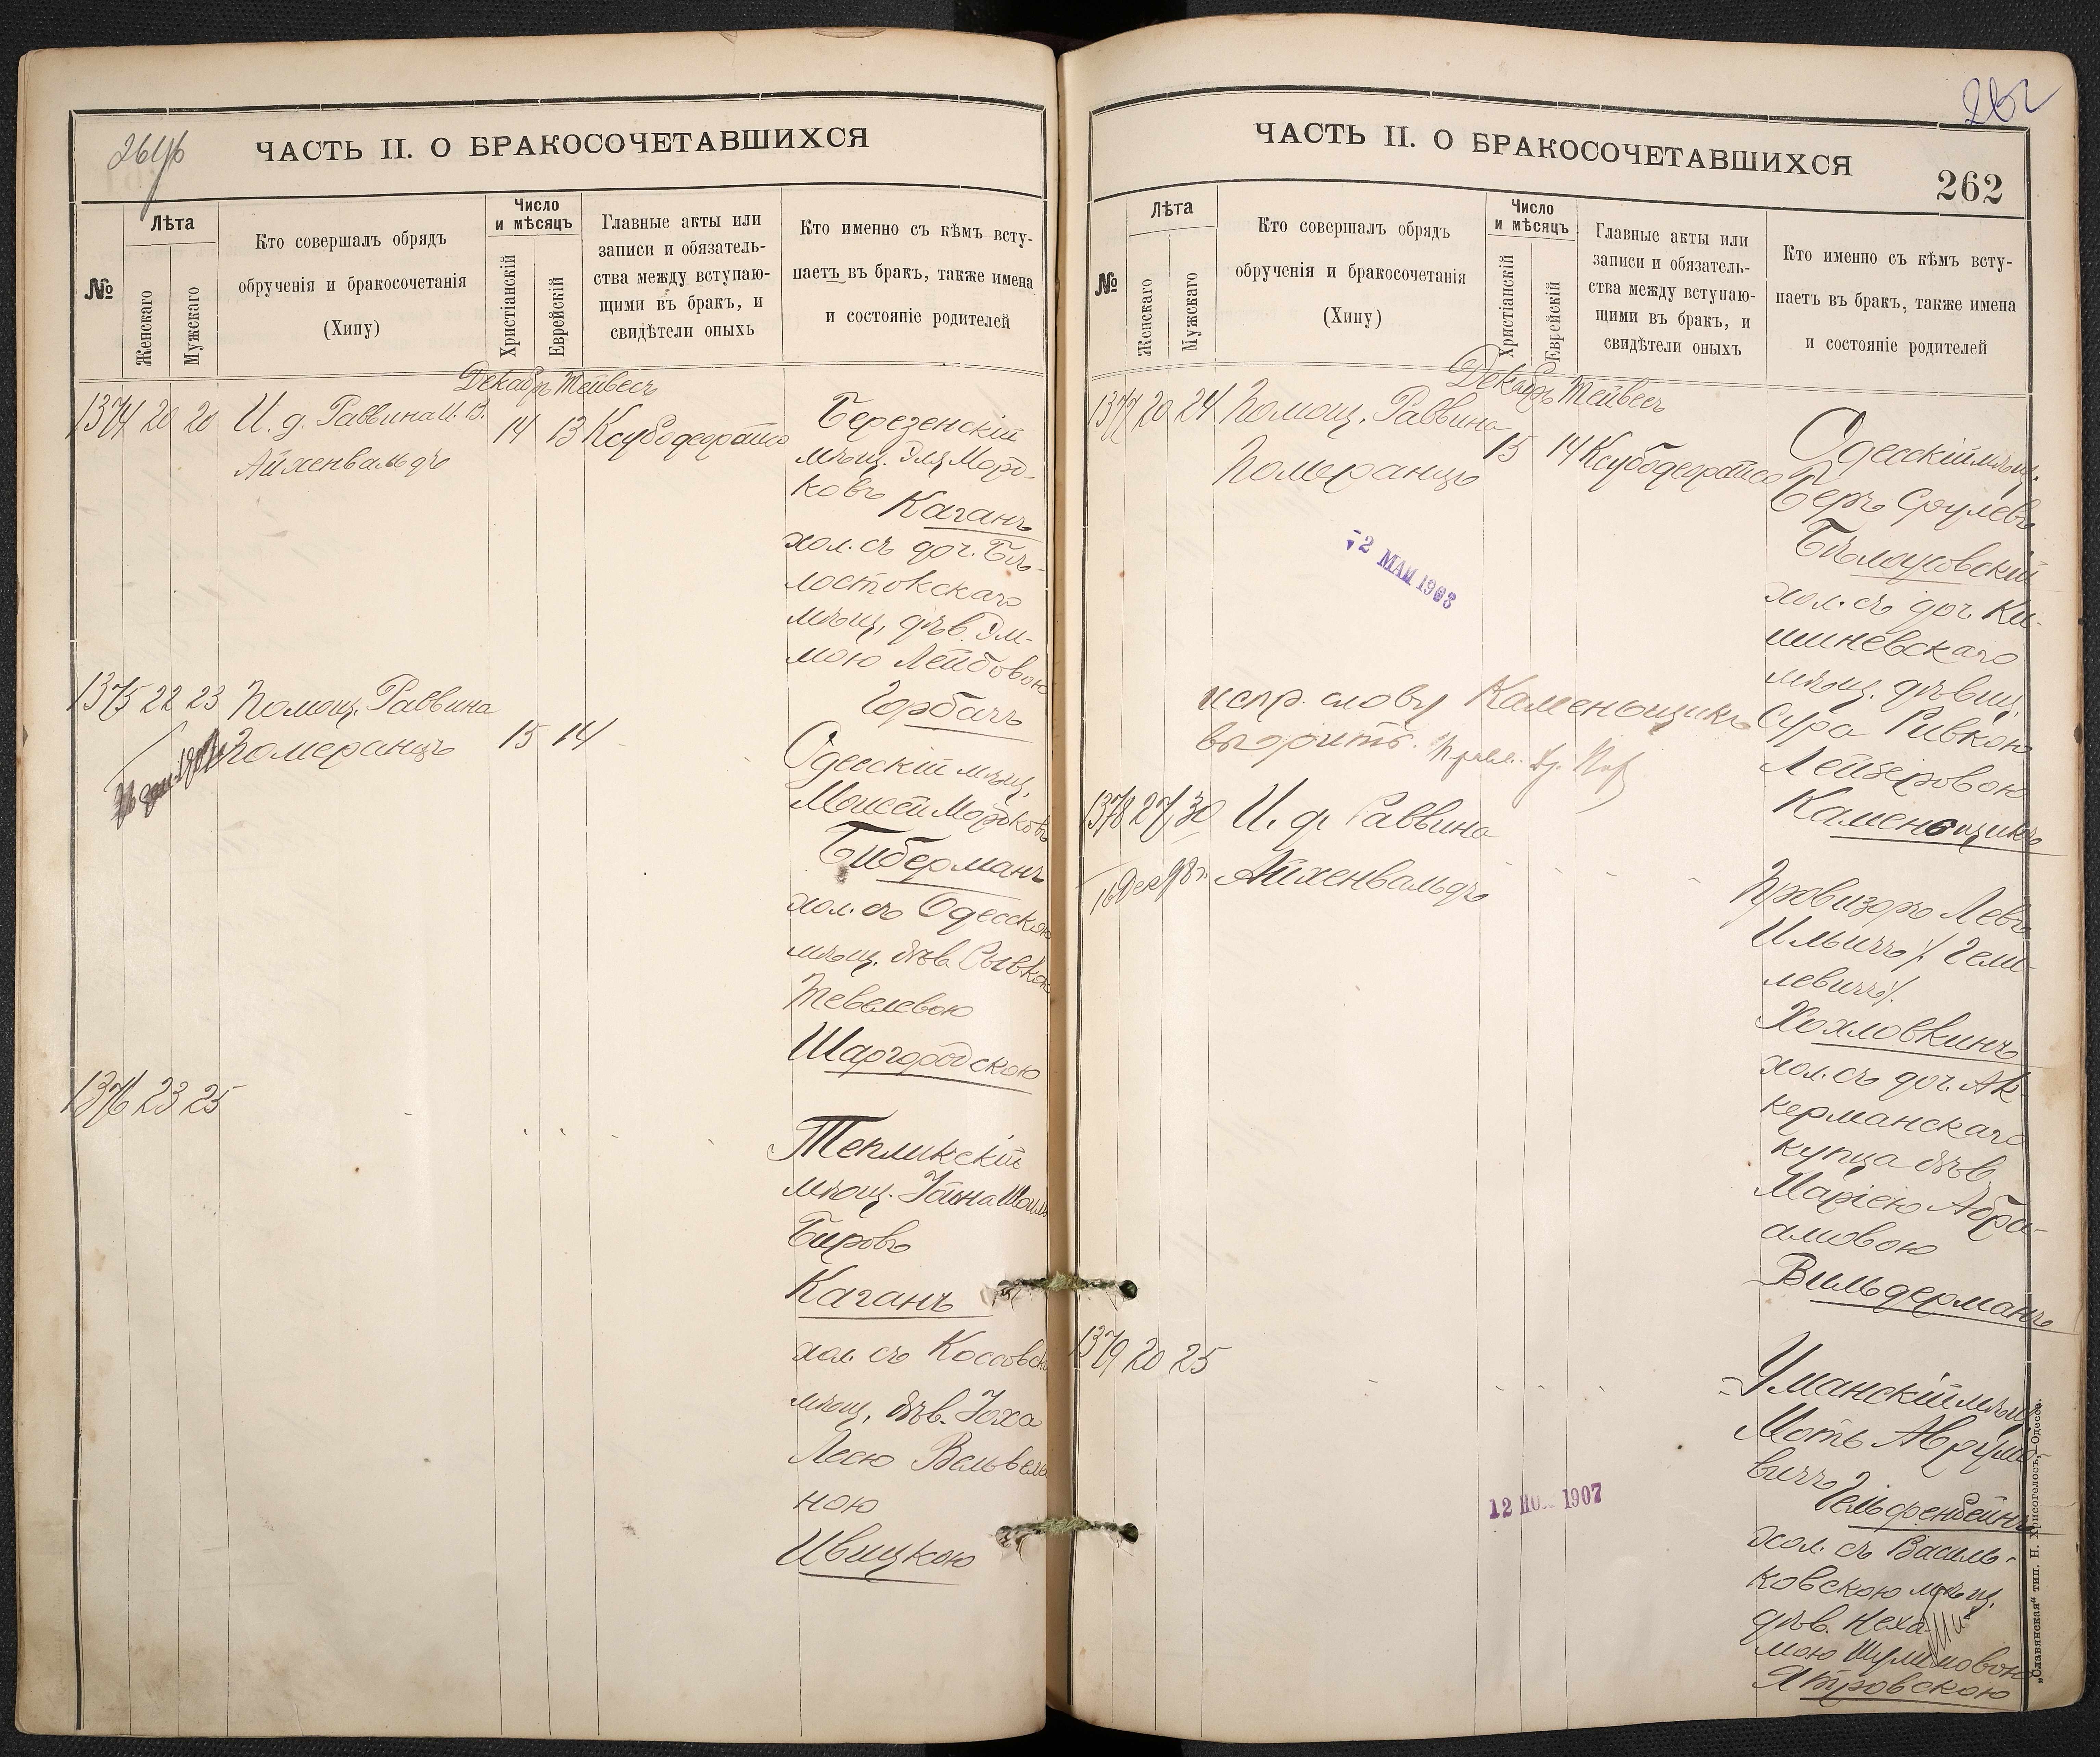 261об
ЧАСТЬ II. О БРАКОСОЧЕТАВШИХСЯ
№
Лѣта
Женскаго
Мужскаго
Кто совершалъ обрядъ
обрученія и бракосочетанія
(Хипу)
Число
и мѣсяцъ
Христіанскій
Еврейскій
Главные акты или
записи и обязатель-
ства между вступаю-
щими въ бракъ, и
свидѣтели оныхъ
Кто именно съ кѣмъ всту-
паетъ въ бракъ, также имена
и состояніе родителей
Декабрь Тейвесъ
1374 20 20 И. д. Раввина И. В.
Айхенвальдъ
14 13 Ксубодеорайсо
Березенскій
мѣщ. Эля Мордко-
ковъ Каганъ
хол. съ доч. Бѣ-
лостокскаго
мѣщ. дѣв. Эт-
мою Лейбовою
Горбачъ
1375 22 23 Помощ. Раввина
Померанцъ
15 14
Одесскій мѣщ.
Моисей Мордковъ
Биберманъ
хол. съ Одесскою
мѣщ. дѣв. Сывкою
Тевелевою
Шаргородскою
1376 23 25
Тепликскій
мѣщ. Іойна Шоиль
Бировъ
Каганъ
хол. съ Коссовск
мѣщ. дѣв. Іоха
Леею Вельвеле
ною
Ивицкою
262
ЧАСТЬ II. О БРАКОСОЧЕТАВШИХСЯ
262
№
Лѣта
Женскаго
Мужскаго
Кто совершалъ обрядъ
обрученія и бракосочетанія
(Хипу)
Число
и мѣсяцъ
Христіанскій
Еврейскій
Главные акты или
записи и обязатель-
ства между вступаю-
щими въ бракъ, и
свидѣтели оныхъ
Кто именно съ кѣмъ всту-
паетъ въ бракъ, также имена
и состояніе родителей
Декабрь Тейвесъ
1377 20 24 Помощ. Раввина
Померанцъ
15 14 Ксубодеорайсо
Одесскій мѣщ.
Беръ Срулевъ
Бѣлоусовскій
хол. съ доч. Ки-
шиневскаго
мѣщ. дѣвиц.
Сура Ривкою
Лейзеровою
Каменощикъ
2 МАИ 1908
испр. слову Каменощикъ
вѣрить.
1378 27 30 И. д. Раввина
Айхенвальдъ
Провизоръ Левъ
Ильичъ /. Гели-
левичъ/.
Хохловкинъ
хол. съ доч. Ак-
керманскаго
купца дѣв.
Маріею Абра-
амовою
Вильдерманъ
1379 20 25
12 НО 1907
Уманскій мѣщ.
Моть Аврумо-
вичъ
Гельфенбейнъ
хол. съ Василь-
ковскою мѣщ.
дѣв. Неха-
мою Шулимовою
Ятровскою
„Славянская“ тип. Н. Хрисогелосъ, Одесса.